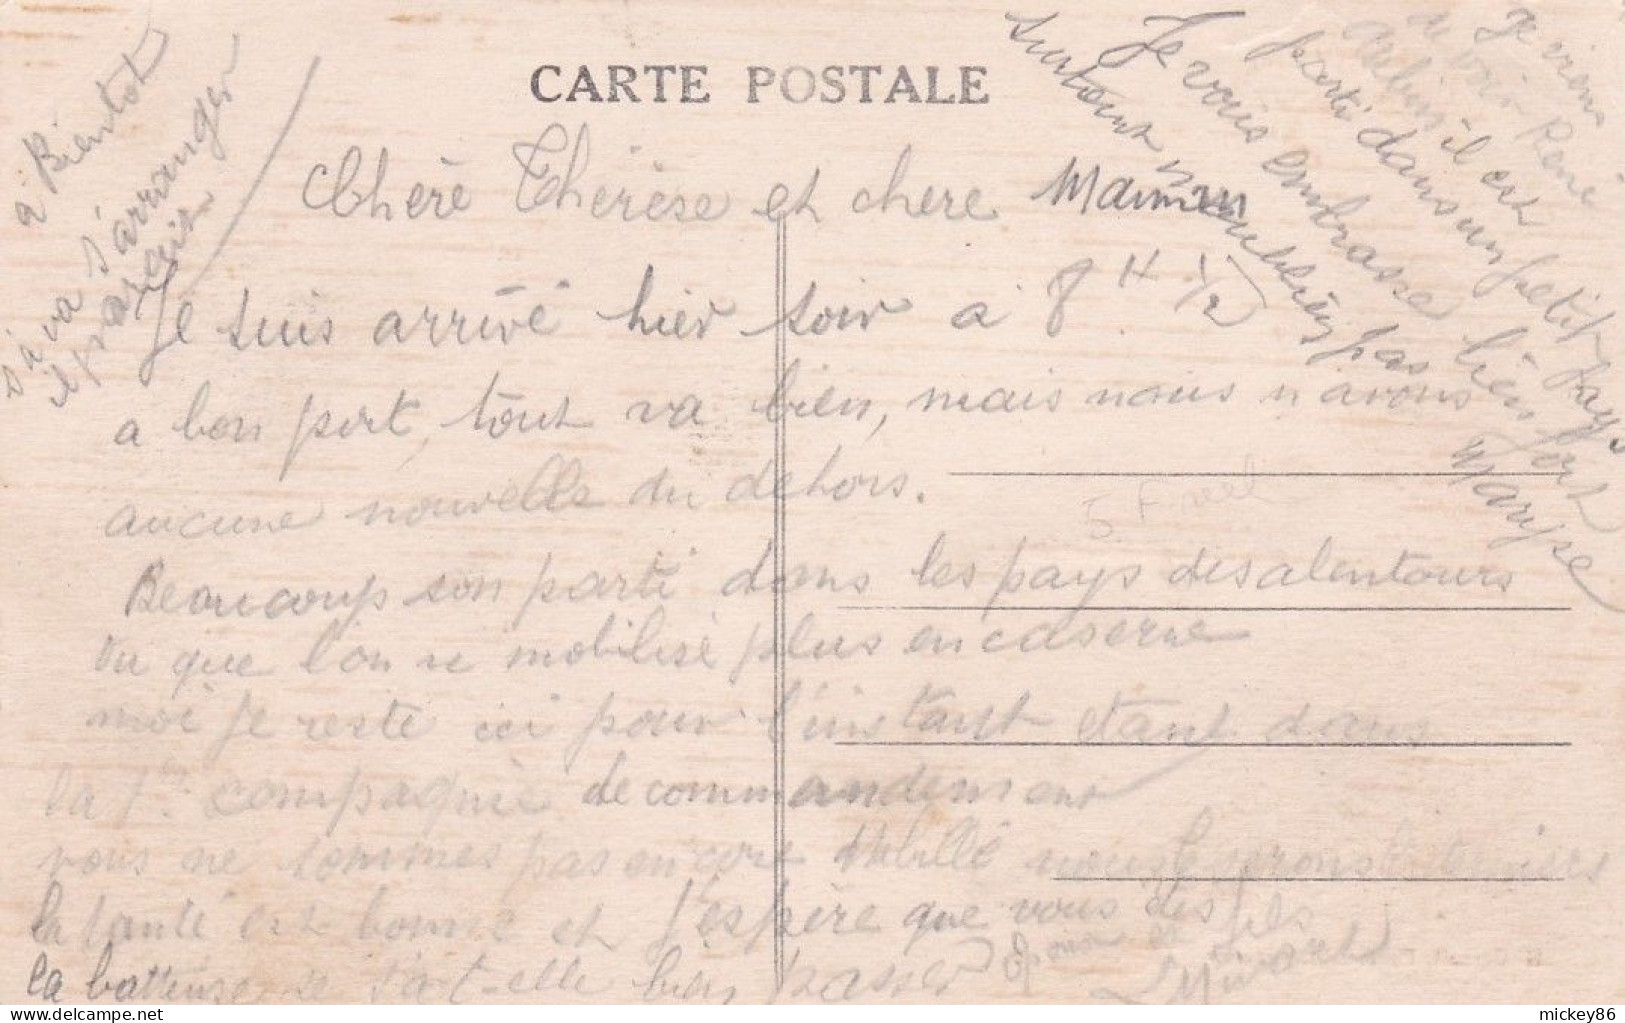 CARTE POSTALE
Chère Thérèse et chere Maman
Je suis arrivé hier soir a 8 H 1/2
a bon port, tout va bien, mais nous n'avons
aucune nouvelle du dehors.
Beaucoup son parti dans les pays des alentours
vu que l'on ne mobilise plus en caserne
moi je reste ici pour l'instant etant dans
la compagnie de commandement
nous ne sommes pas encore habillé nous le serons
la santé est bonne et j'espère que vous des
la batteuse se s'art-elle bien passer
Epoux et fils
à Bientot
s'a va s'arranger
il parait
Je viens
de voir René
il est
parti dans un petit pays
Je vous embrasse bien fort
surtout n'oubliez pas
Maryse
5 F
mickey86